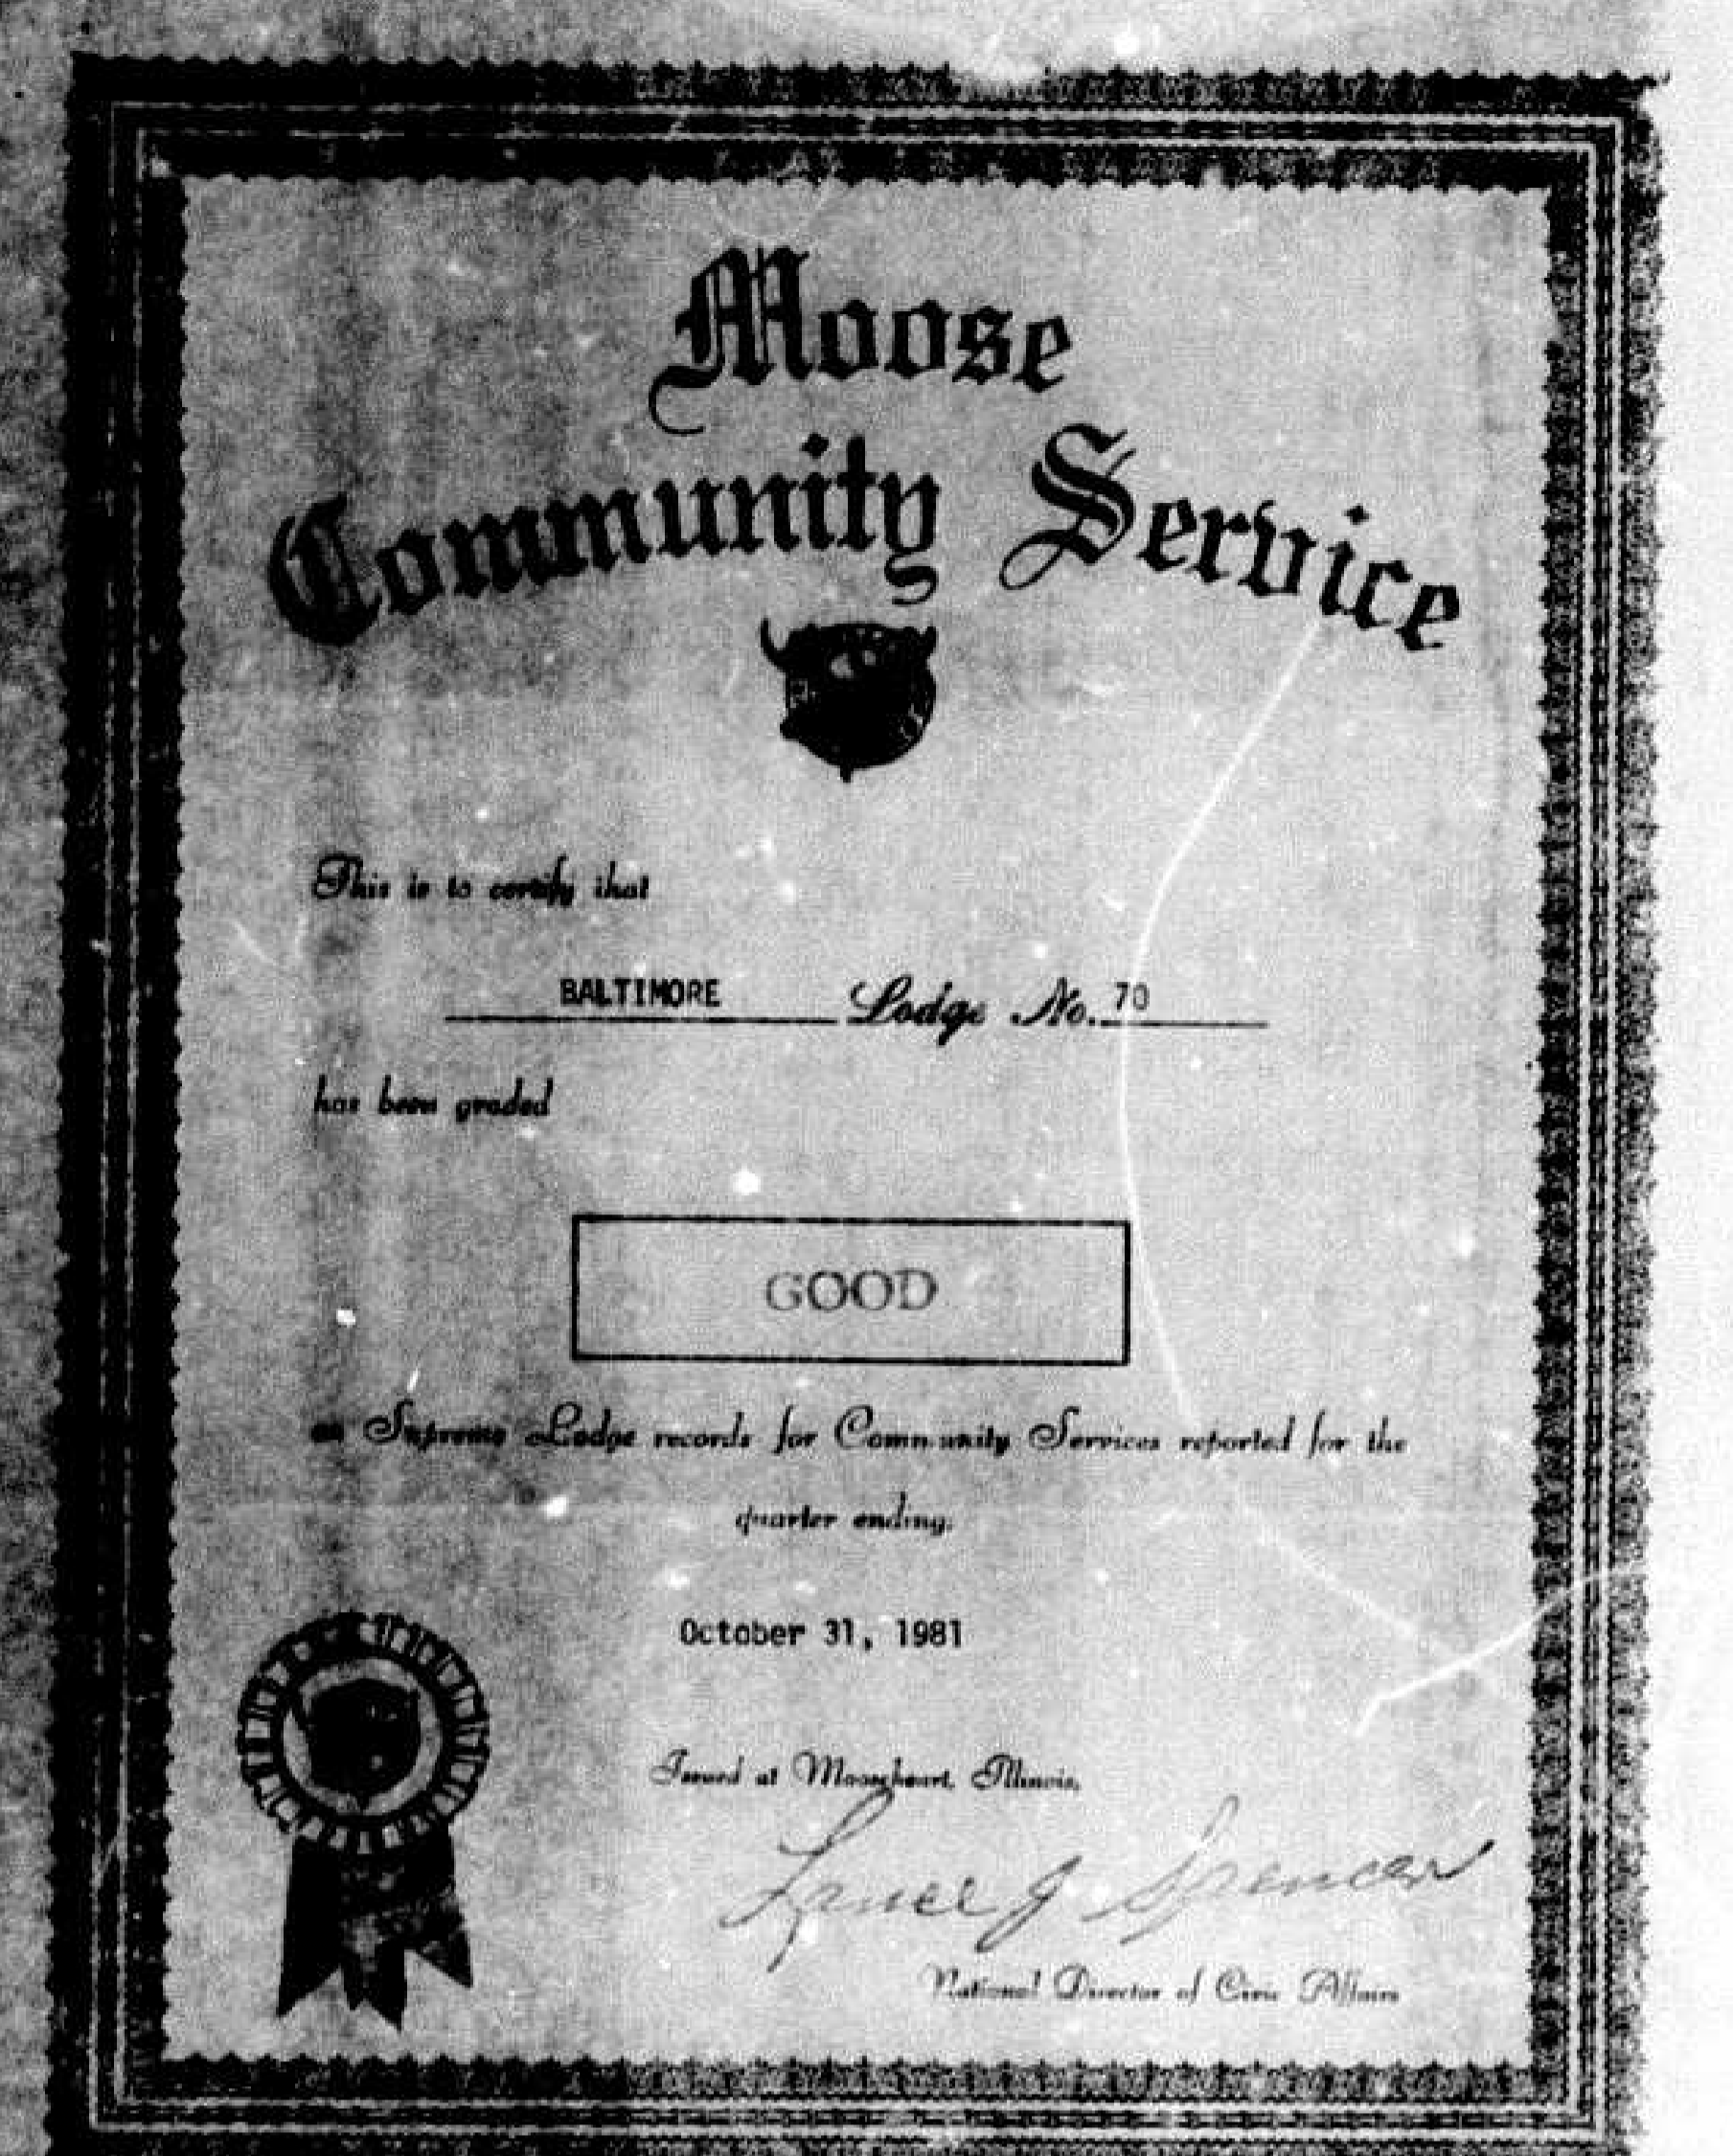 Moose
Community Service
This is to certify that
BALTIMORE Lodge No. 70
has been graded
GOOD
on Supreme Lodge records for Community Services reported for the
quarter ending.
October 31, 1981
Issued at Mooseheart, Illinois,
Lance J Spencer
National Director of Civic Affairs